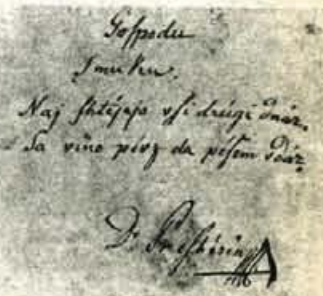 Gospodu
Smuku.
Naj shtéjejo vsi drúgi dnár.
Sa vino pévz da pésem dár.
Dr Preshérin